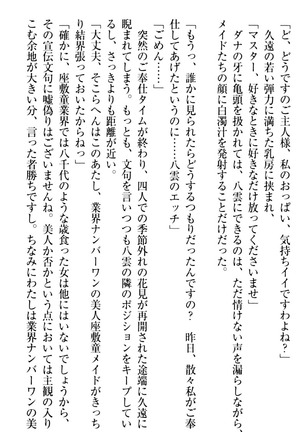 「ど、どうですのご主人様、私のおっぱい、気持ちイイですわよね？」
　久遠の若い弾力に満ちた乳房に挟まれ、
「マスター、好きなときに好きなだけ放ってくださいませ」
　ダナの牙に亀頭を扱かれては、八雲にできるのは、ただ情けない声を漏らしながら、
メイドたちの顔に白濁汁を発射することだけだった。
「もうっ、誰かに見られたらどうするつもりだったんですの？　昨日、散々私がご奉
仕してあげたというのに……八雲のエッチ」
「ごめん……」
　突然のご奉仕タイムが終わり、四人での季節外れの花見が再開された途端に久遠に
睨まれてしまう。もっとも、文句を言いつつも八雲の隣のポジションをキープしてい
るし、さっきよりも距離が近い。
「大丈夫、そこらへんはこのあたし、業界ナンバーワンの美人座敷童メイドがきっち
り結界張っておいたからねっ」
「確かに、座敷童業界では八千代のような歳食った女は他にはいないでしょうから、
その宣伝文句に嘘偽りはございませんね。美人か否かという点においては主観の入り
こむ余地が大きい分、言った者勝ちですし。ちなみにわたしは業界ナンバーワンの美